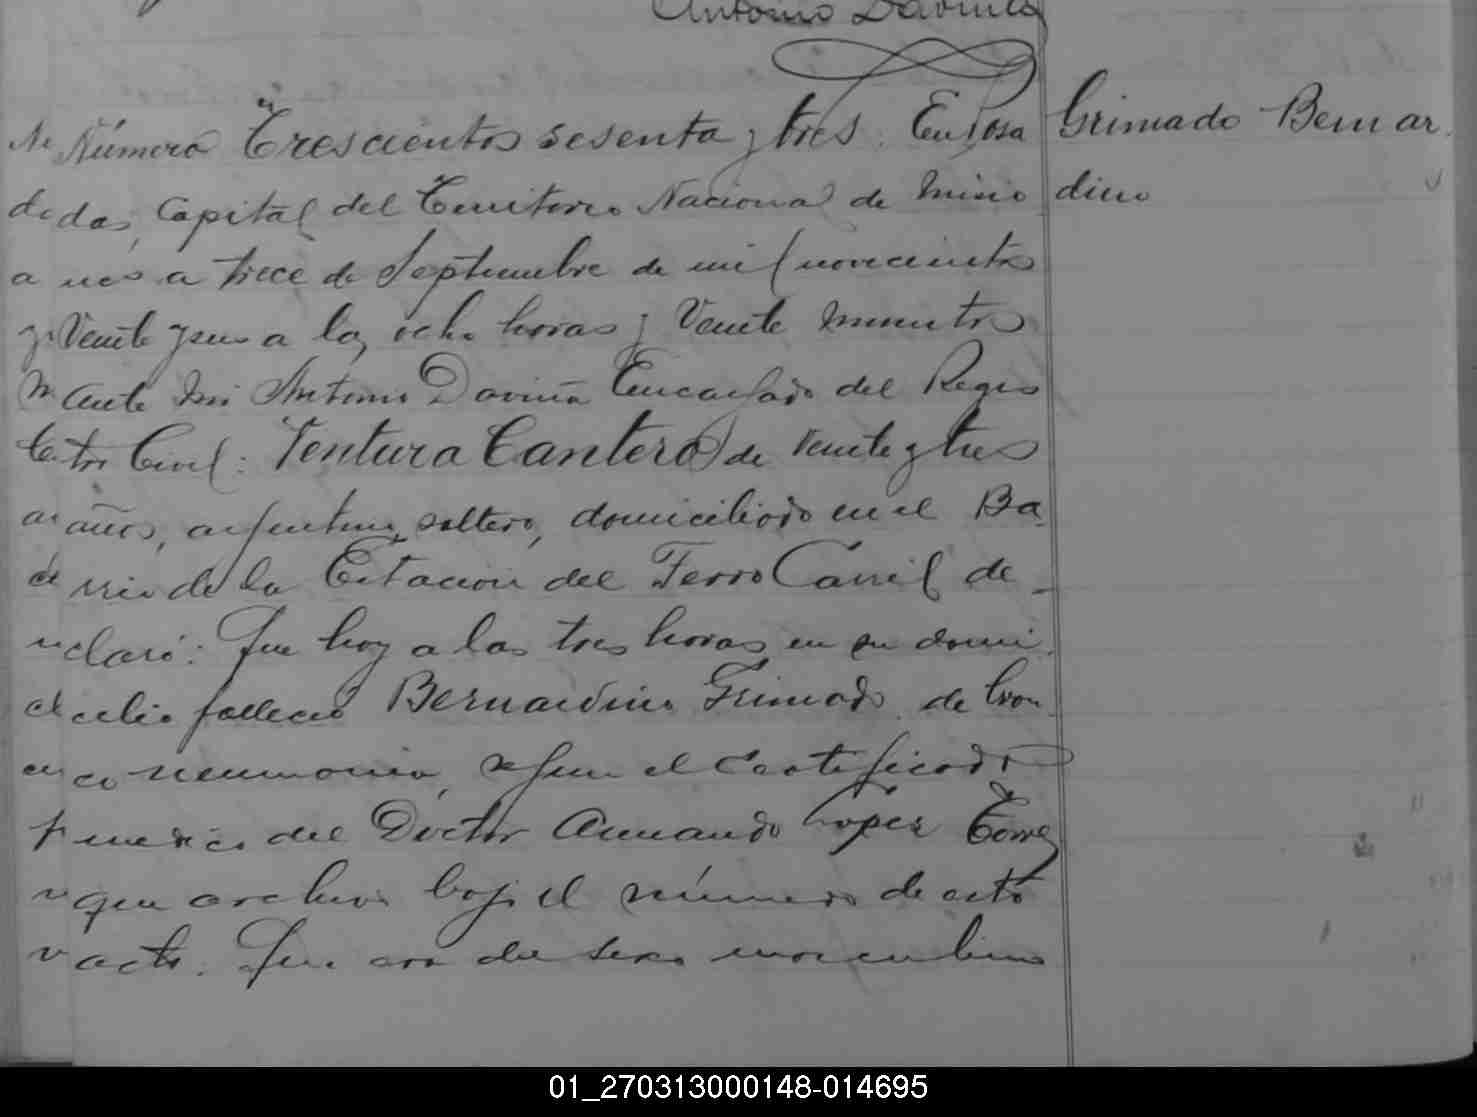 Antonio Daviña
Número Trescientos sesenta y tres: En Posa
Grimado Bernar
dino
das, Capital del Territorio Nacional de Misio
nes a trece de Septiembre de mil novecientos
y Veinte y uno a las ocho horas y Veinte minutos
ante mi Antonio Daviña Encargado del Regis
tro Civil: Ventura Cantero de veinte y tres
años, argentino, soltero, domiciliado en el Ba
rrio de la Estacion del Ferro Carril de
claró: Que hoy a las tres horas en su domi
cilio falleció Bernardino Grimado de bron
co neumonia, segun el certificado
medico del Doctor Armando Lopez Torres
que archivo bajo el número de esta
acta. Que era de sexo masculino
01_270313000148-014695